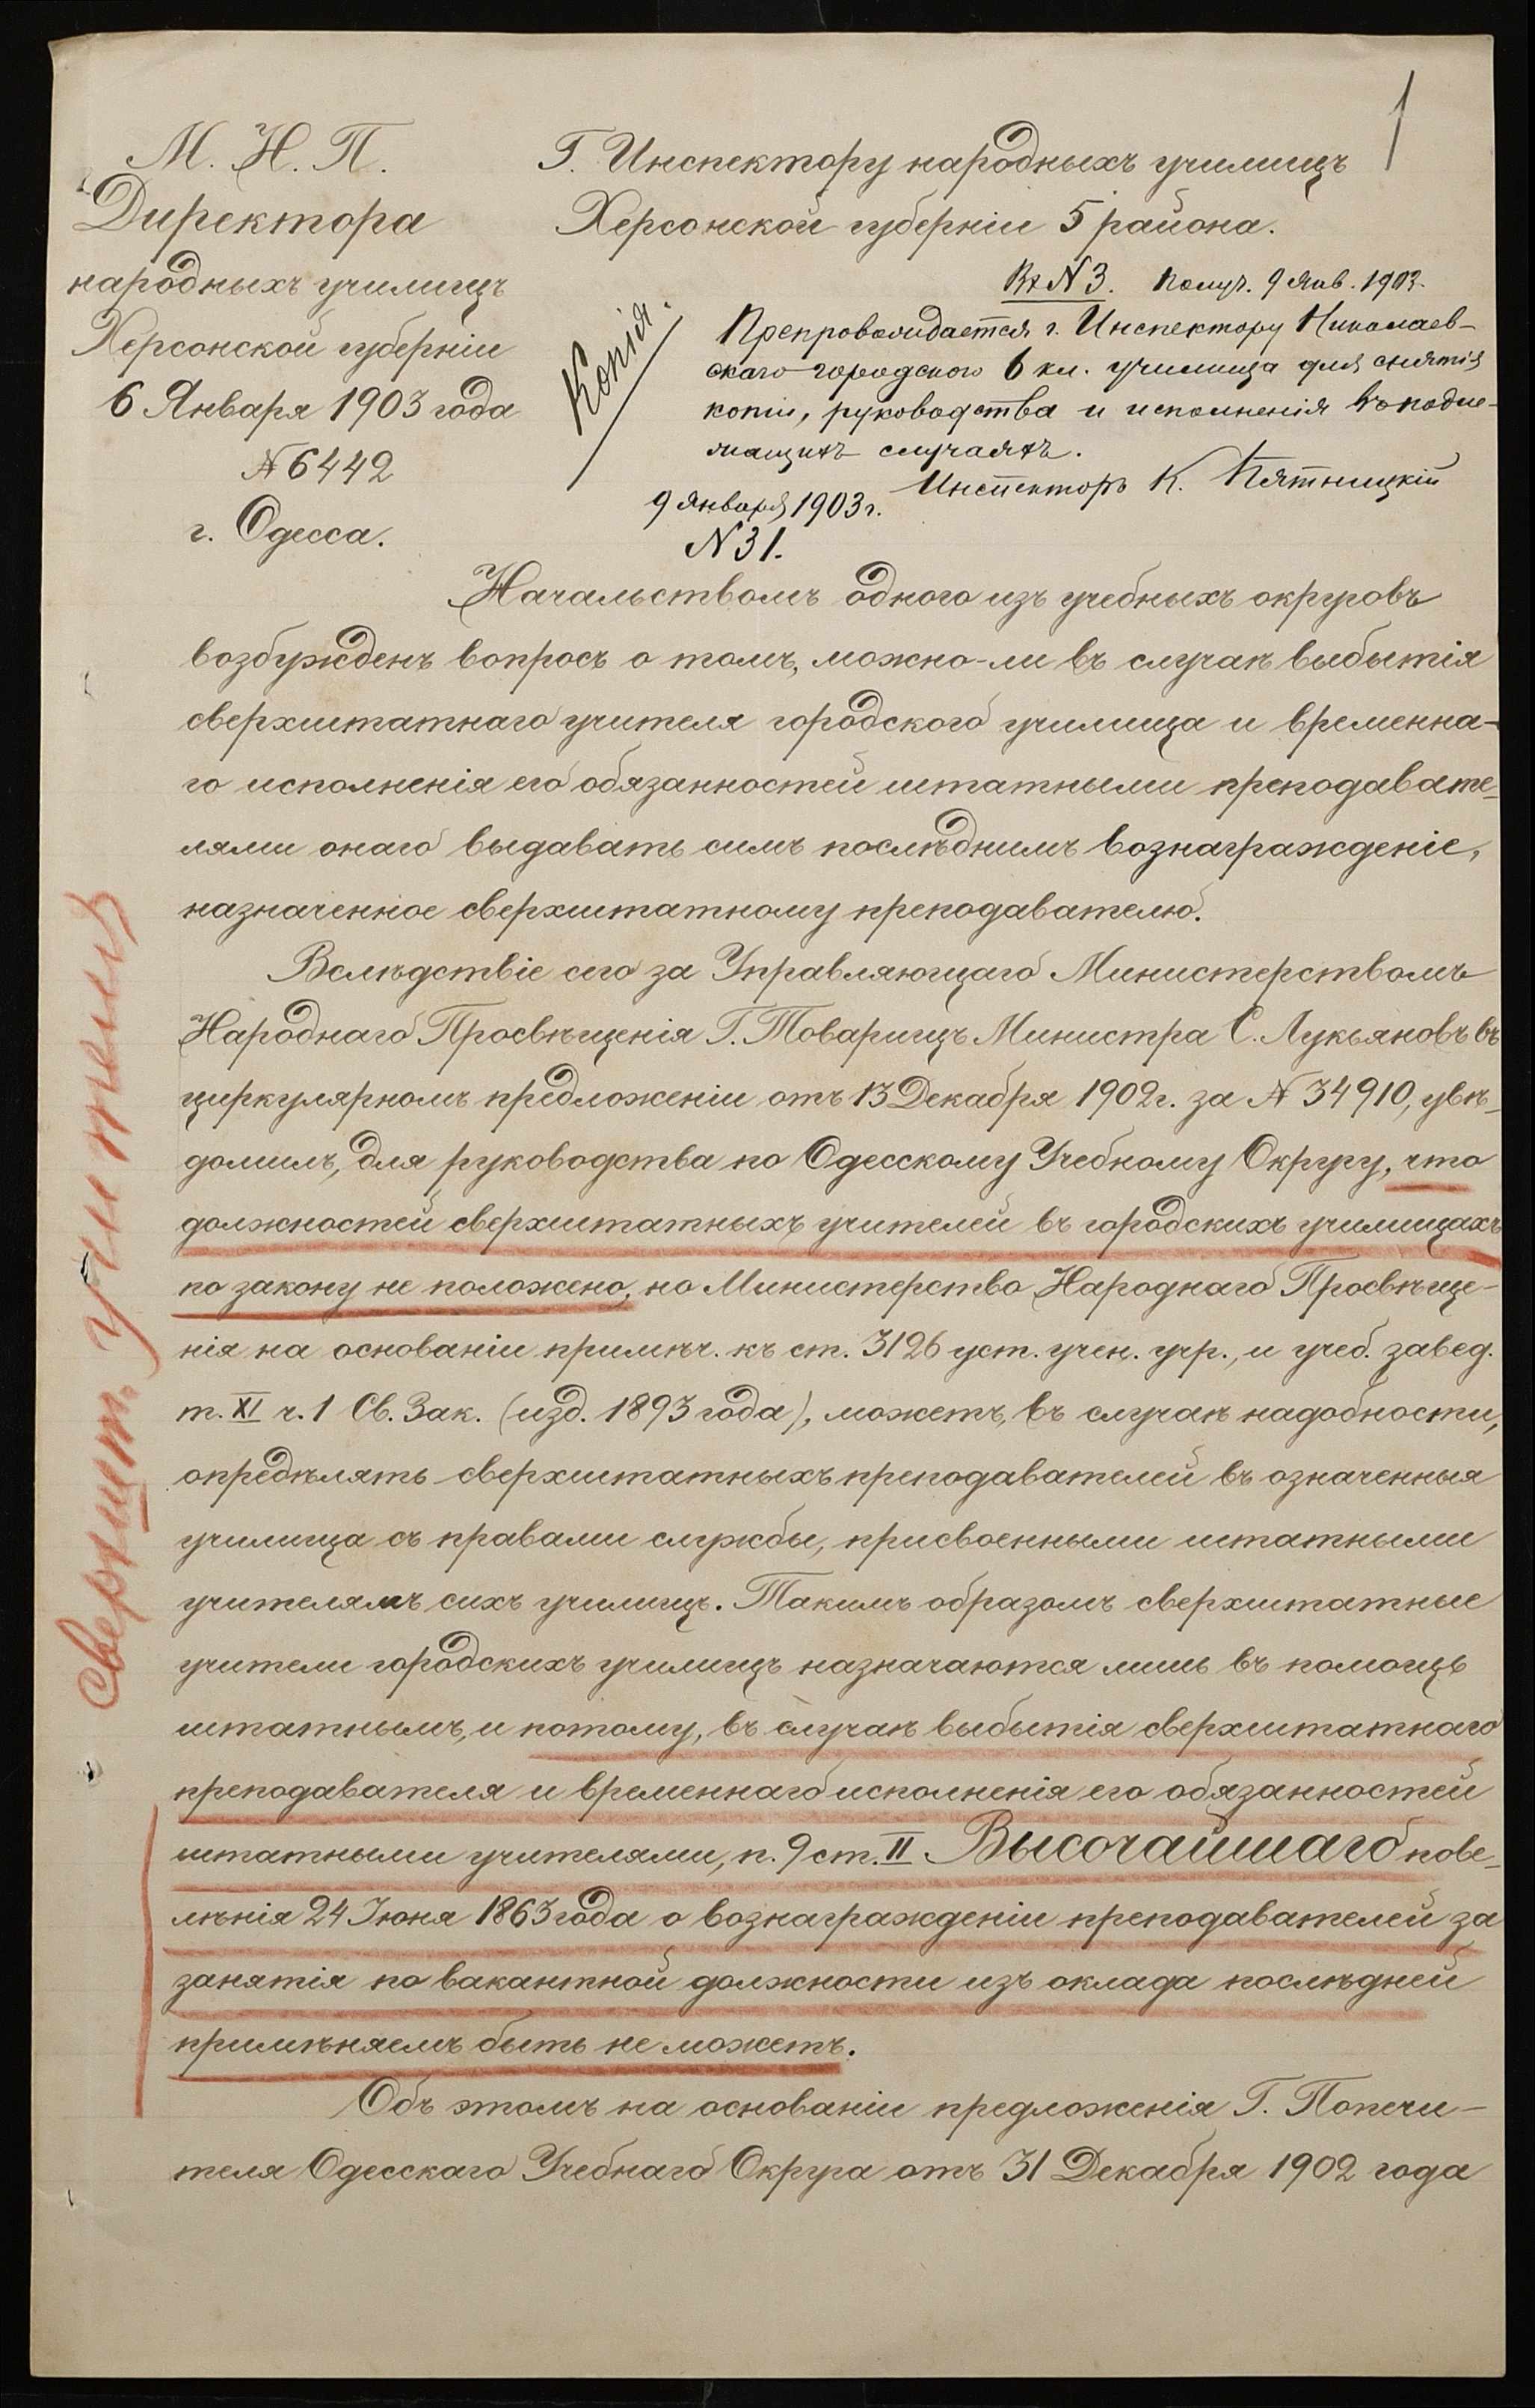 1
М. Н. П.
Директора
народныхъ училищъ
Херсонской губерніи
6 Января 1903 года
№ 6442
г. Одесса.
Г. Инспектору народныхъ училищъ
Херсонской губерніи 5 района.
Вх № 3. Получ. 9 Янв. 1903.
Копія.
Препровождается г. Инспектору Николаев-
скаго городского 6 кл. училища для снятія
копіи, руководства и исполненія въ подле-
жащихъ случаяхъ.
Инспекторъ К. Пятницкій
9 января 1903 г.
№ 31.
Начальствомъ одного изъ учебныхъ округовъ
возбужденъ вопросъ о томъ, можно-ли въ случаѣ выбытія
сверхштатнаго учителя городского училища и временна-
го исполненія его обязанностей штатными преподавате-
лями онаго выдавать симъ послѣднимъ вознагражденіе,
назначенное сверхштатному преподавателю.
Вслѣдствіе сего за Управляющаго Министерствомъ
Народнаго Просвѣщенія Г. Товарищъ Министра С. Лукьяновъ въ
циркулярномъ предложеніи отъ 13 Декабря 1902 г. за № 34910, увѣ-
домилъ, для руководства по Одесскому Учебному Округу, что
должностей сверхштатныхъ учителей въ городскихъ училищахъ
по закону не положено, но Министерство Народнаго Просвѣще-
нія на основаніи примѣч. къ ст. 3126 уст. учен. учр., и учеб. завед.
т. XI ч. 1 Св. Зак. (изд. 1893 года), можетъ, въ случаѣ надобности,
опредѣлять сверхштатныхъ преподавателей въ означенныя
училища съ правами службы, присвоенными штатными
учителямъ сихъ училищъ. Такимъ образомъ сверхштатные
учители городскихъ училищъ назначаются лишь въ помощь
штатнымъ, и потому, въ случаѣ выбытія сверхштатнаго
преподавателя и временнаго исполненія его обязанностей
штатными учителями, п. 9 ст. II Высочайшаго пове-
лѣнія 24 Іюня 1863 года о вознагражденіи преподавателей за
занятія по вакантной должности изъ оклада послѣдней
примѣняемъ быть не можетъ.
Объ этомъ на основаніи предложенія Г. Попечи-
теля Одесскаго Учебнаго Округа отъ 31 Декабря 1902 года
Сверхшт.